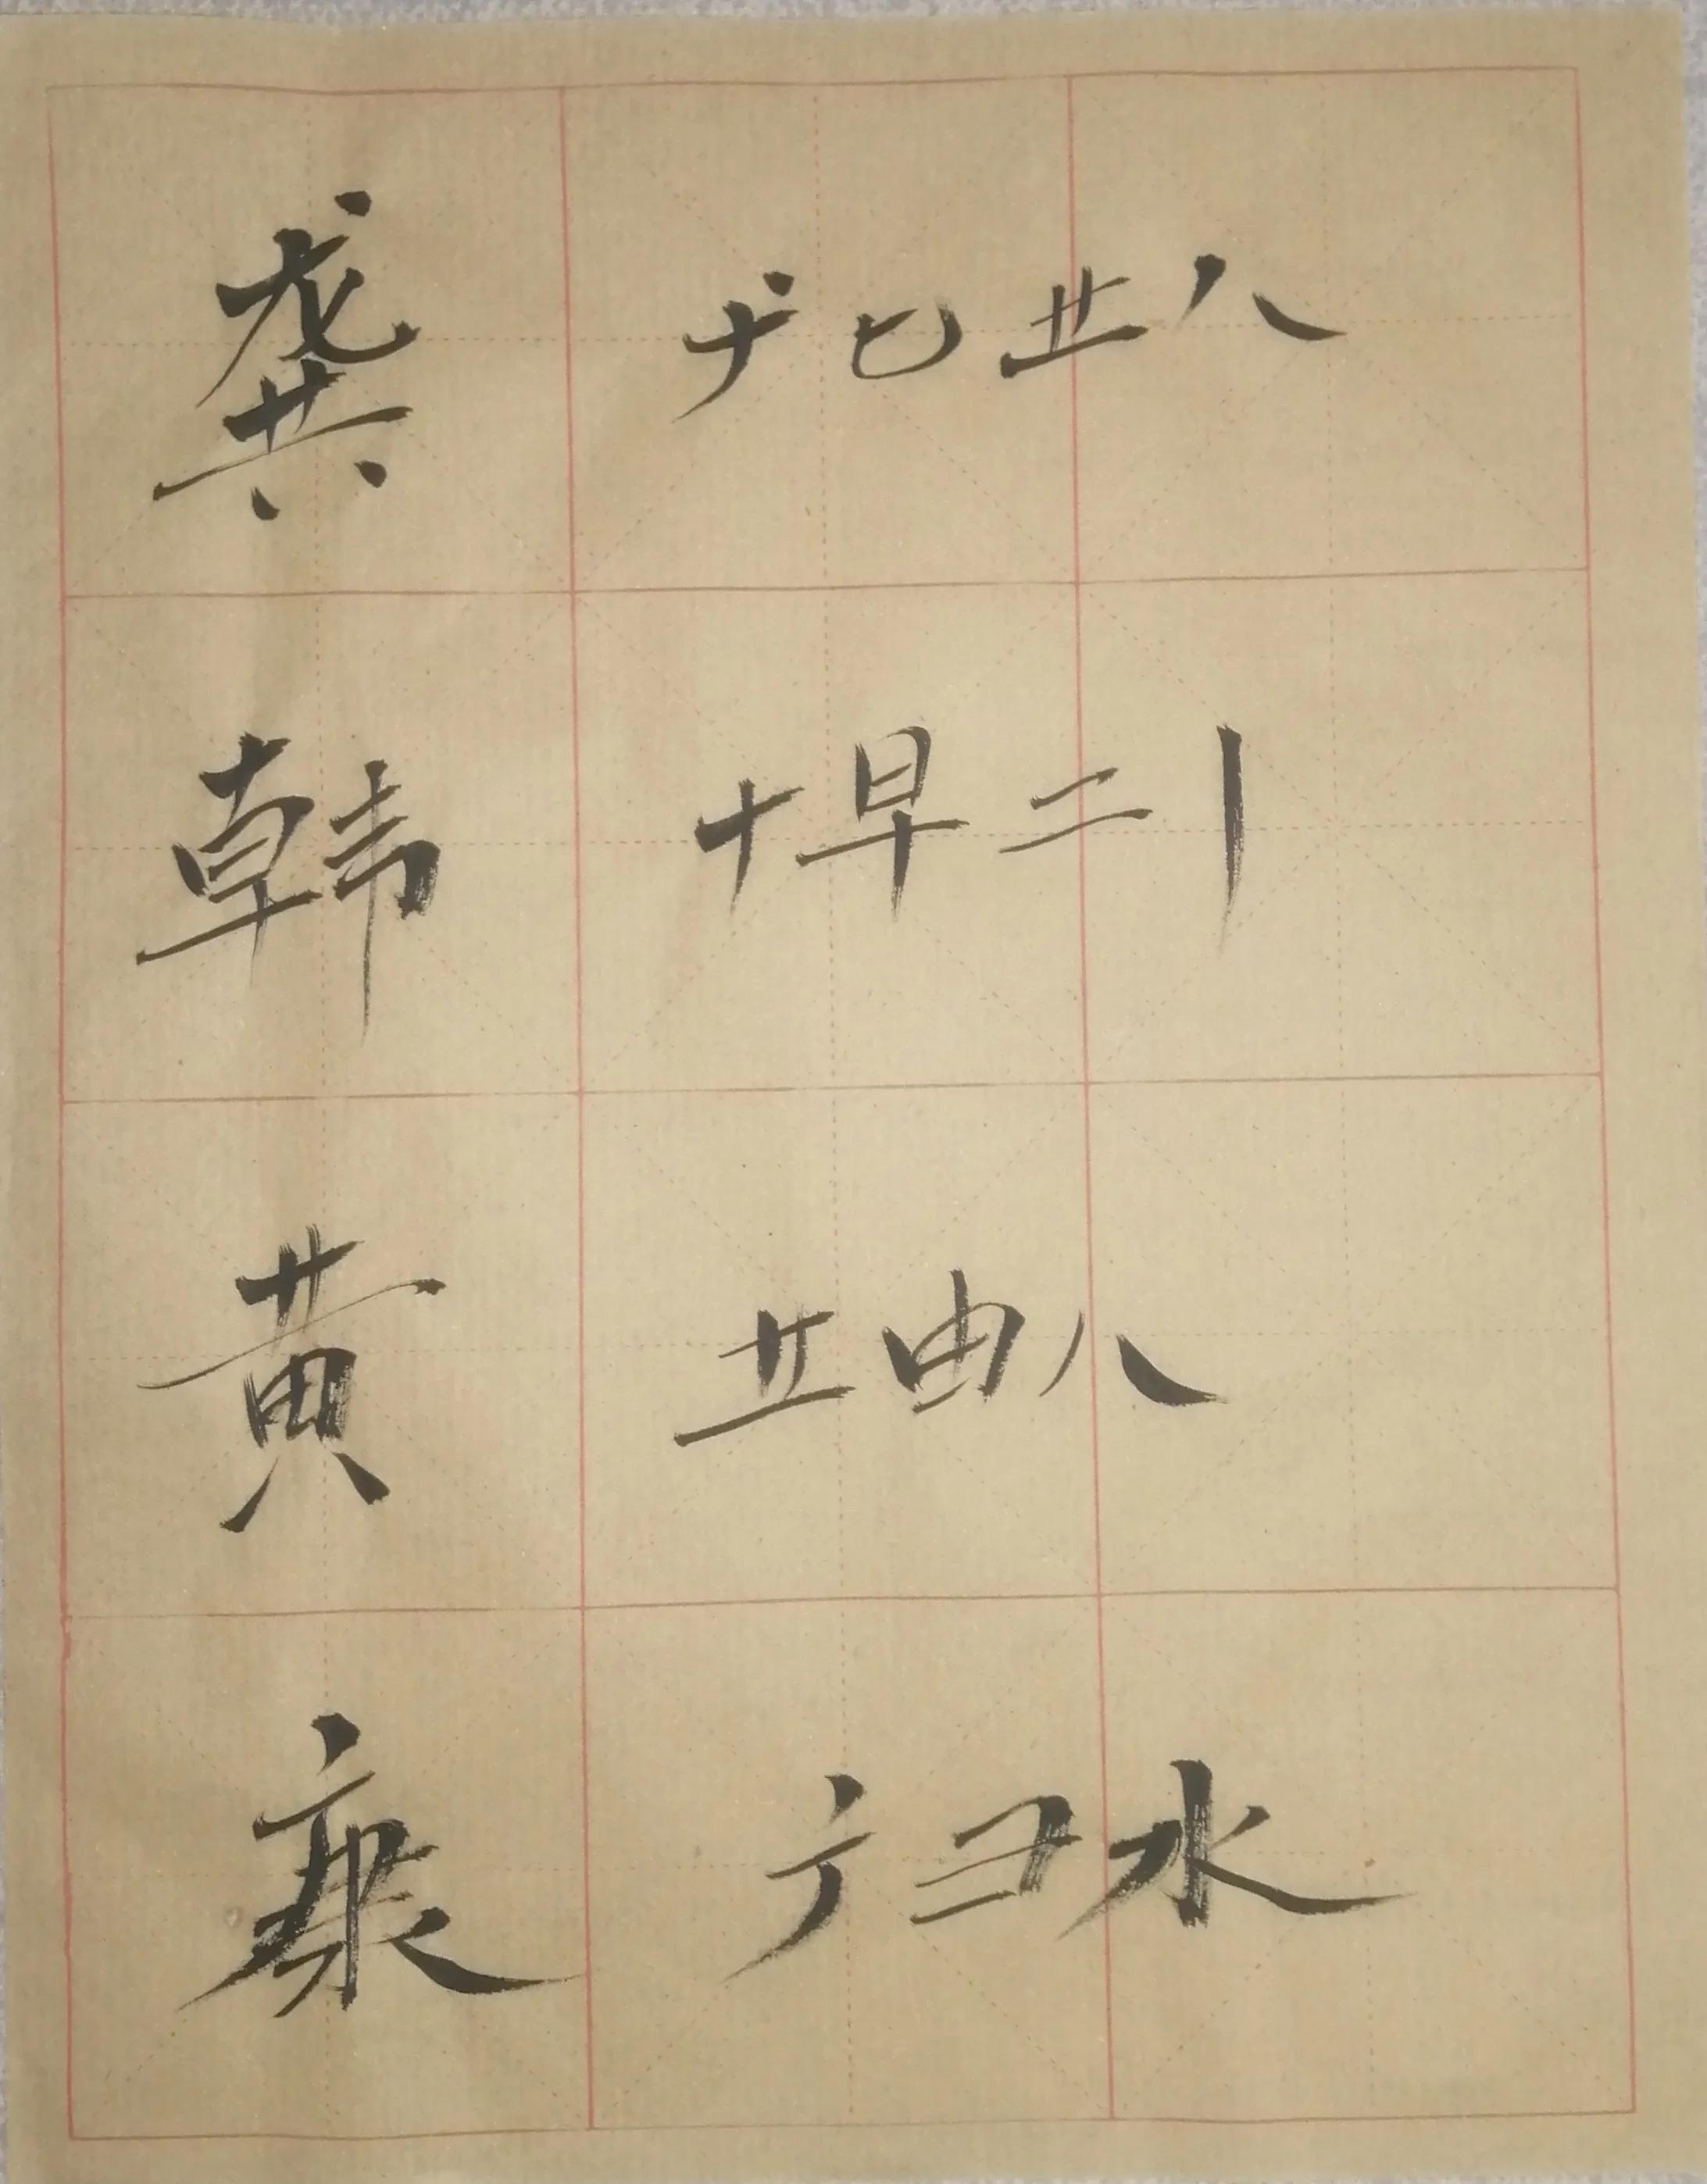 龚 ナ 匕 龷 八
韩 十 早 二 丨
黄 龷 由 八
康 广 彐 水